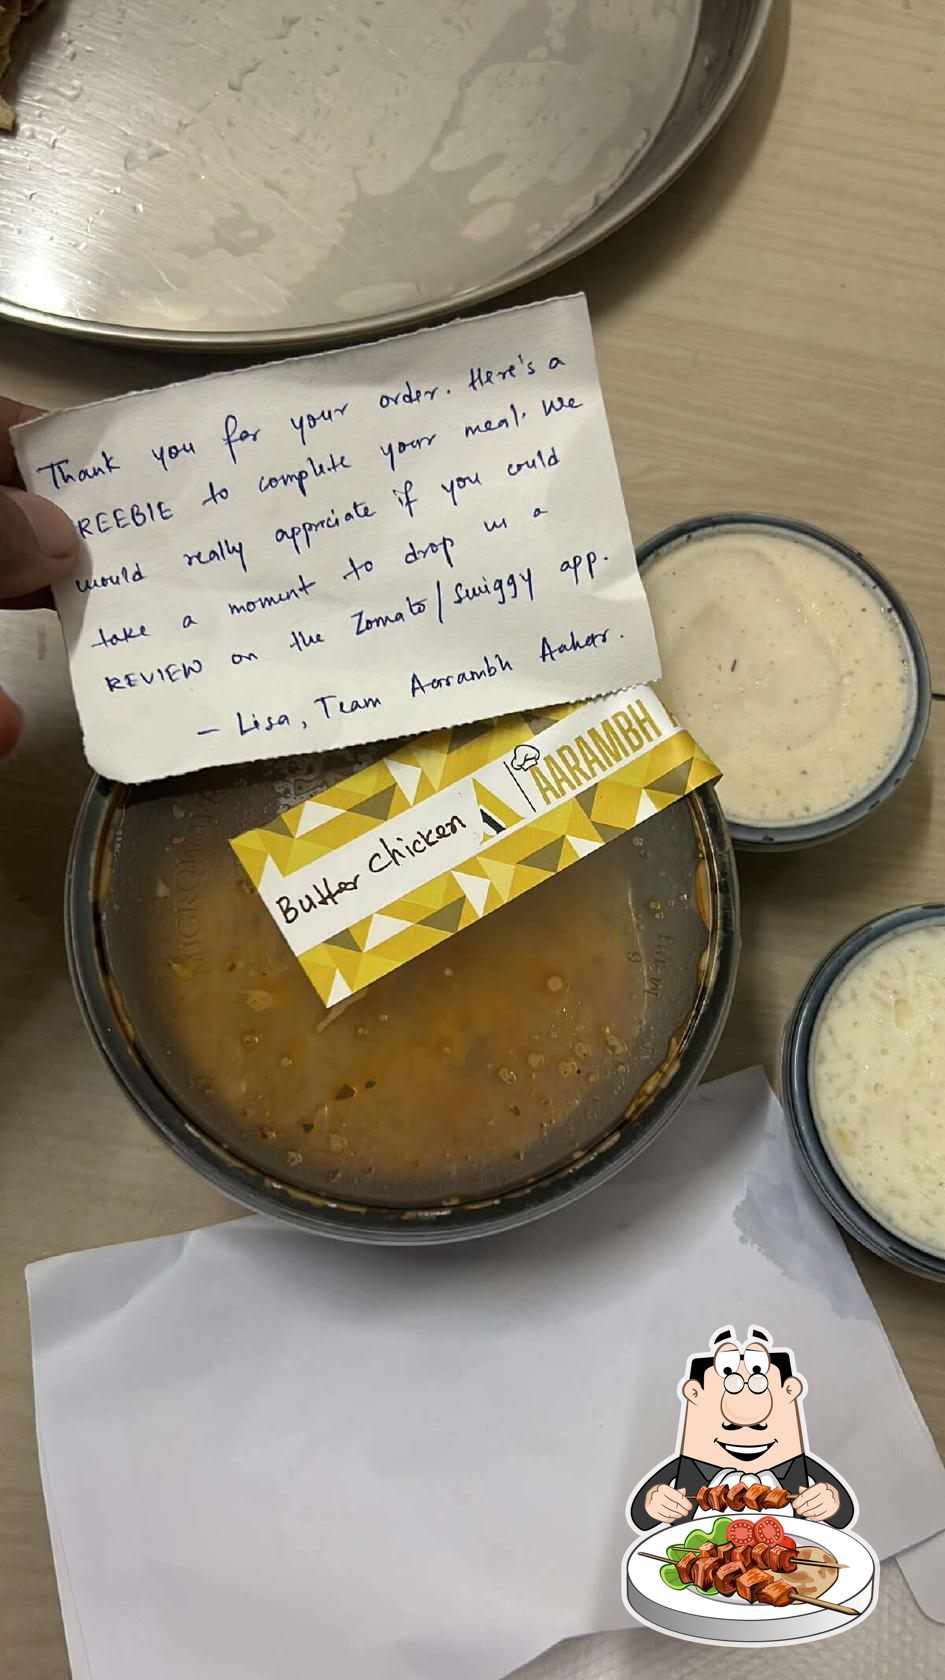 Thank you for your order. Here's a
REEBIE to complete your meal. We
would really appriciate if you could
take a moment to drop us a
REVIEW on the Zomato/Swiggy app.
- Lisa, Team Aarambh Aahar.
Butter Chicken
AARAMBH